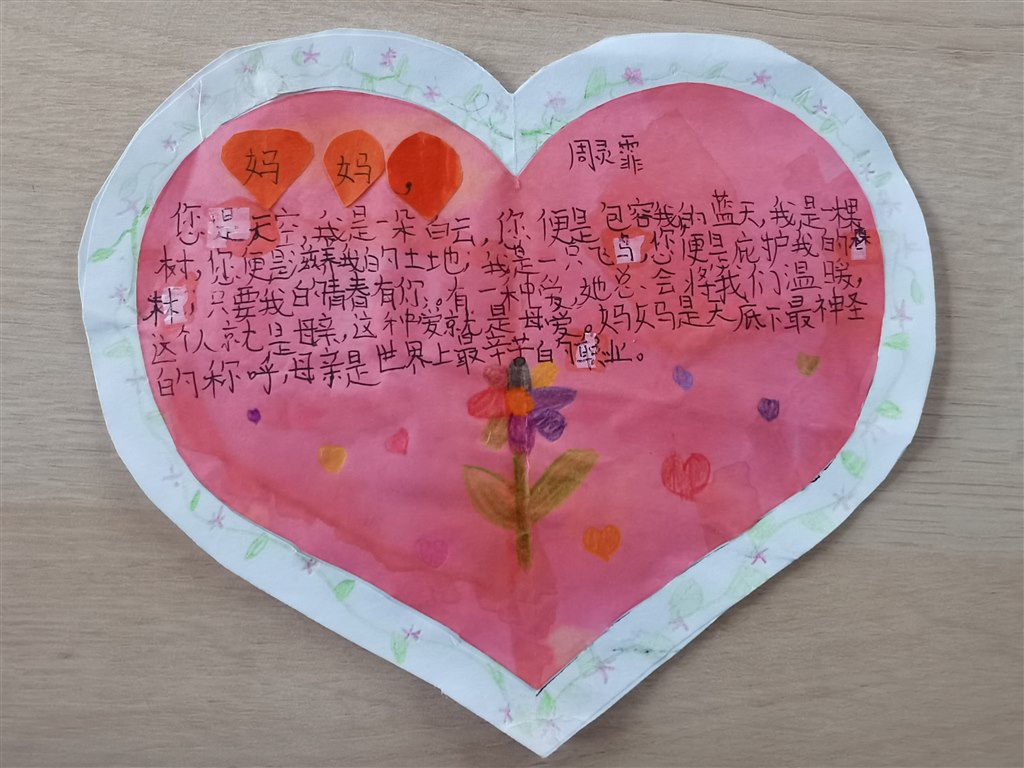 妈妈，
周灵霏
您是天空，我是一朵白云，你便是包容我的蓝天，我是一棵
树，您便是我的土地，我是一只飞鸟，您便是庇护我的森
林，只要我的情春有你。有一种爱，她总会将我们温暖，
这个人就是母亲，这种爱就是母爱。妈妈是天底下最神圣
的称呼，母亲是世界上最辛苦的职业。